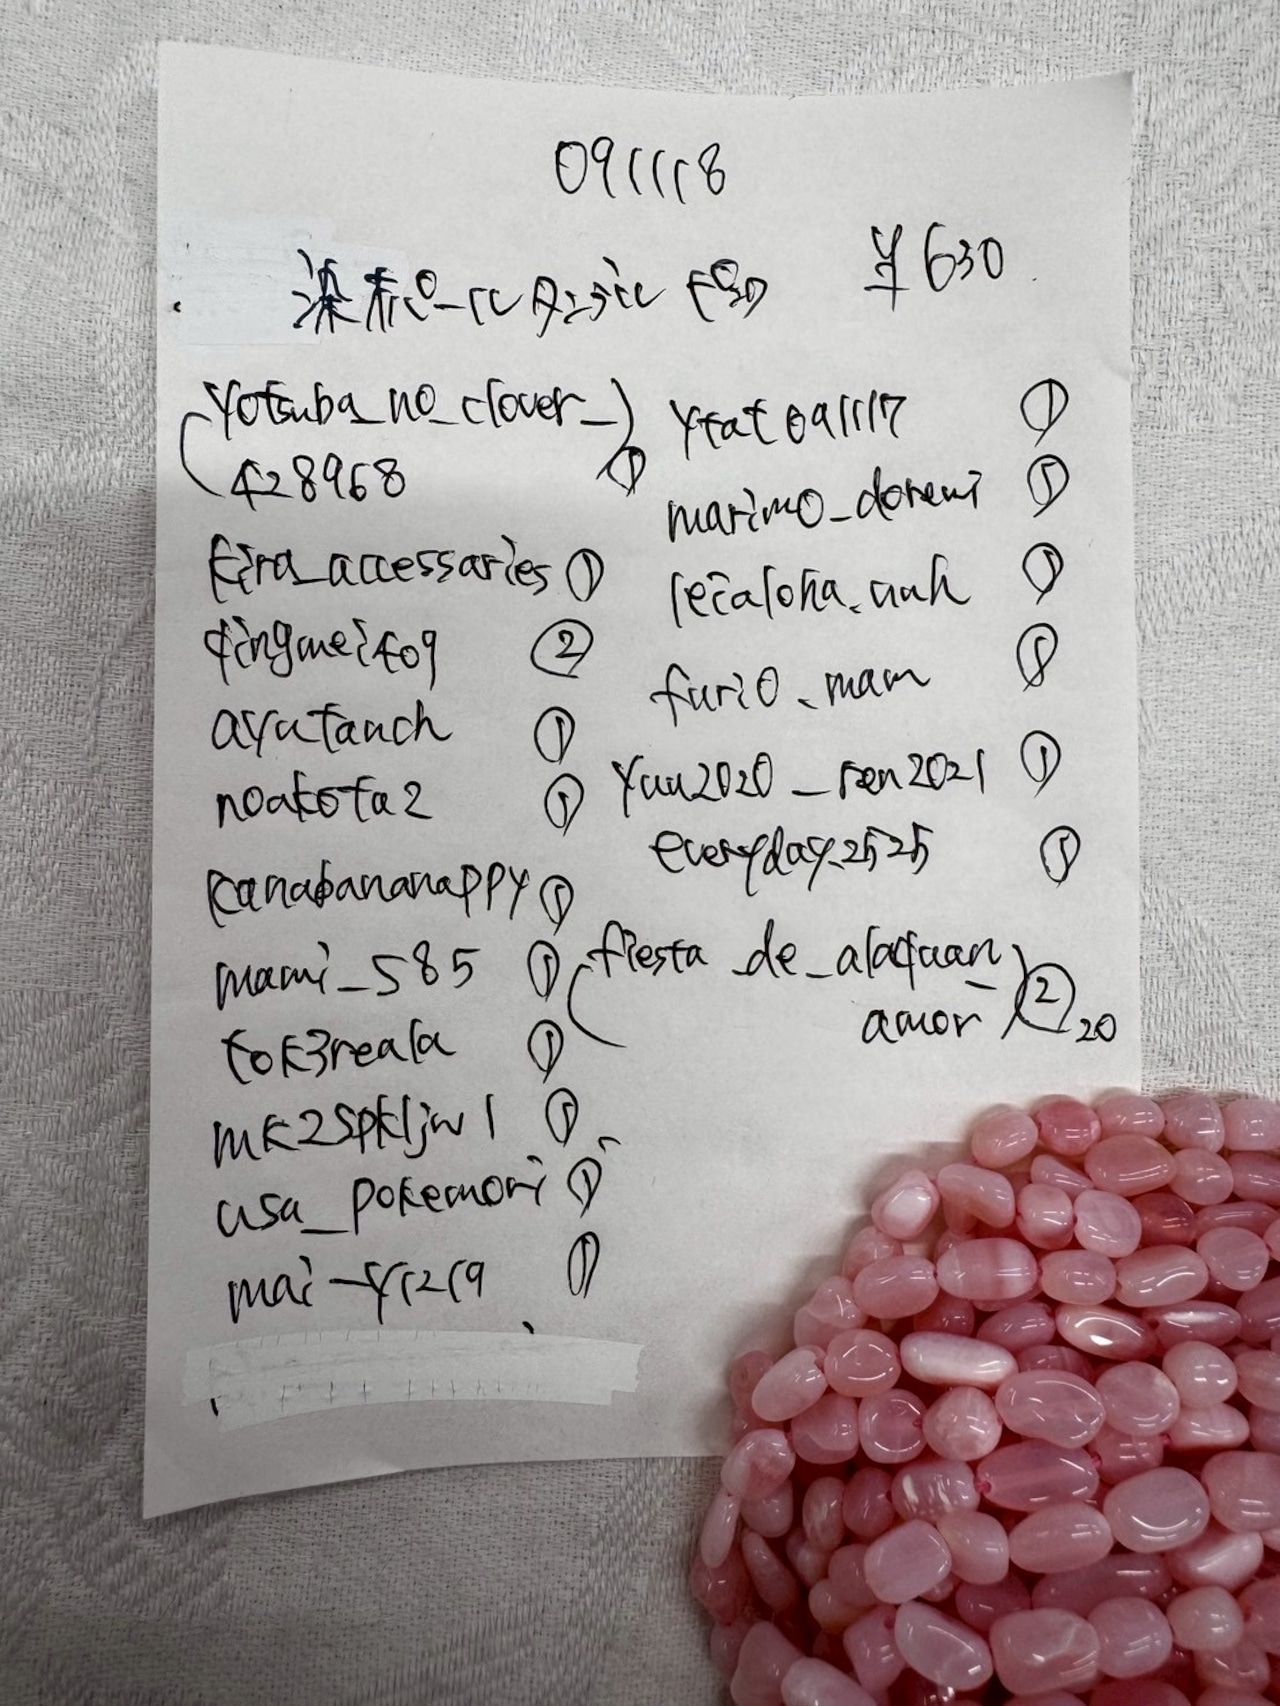 091118
¥630
yotsuba_no_clover_
428968 ①
kira_accessaries ①
qingmei409 ②
ayutanch ①
noakota2 ①
kanabananappy ①
mami_585 ①
tok3reala ①
mk2spkljw1 ①
usa_pokemori ①
mai-y1219 ①
ytat091117 ①
marimo_doremi ①
leialoha.nuh ①
furio.mam ①
yuu2020_ren2021 ①
everyday.2525 ①
fiesta_de_alaquan_
amor ② 20